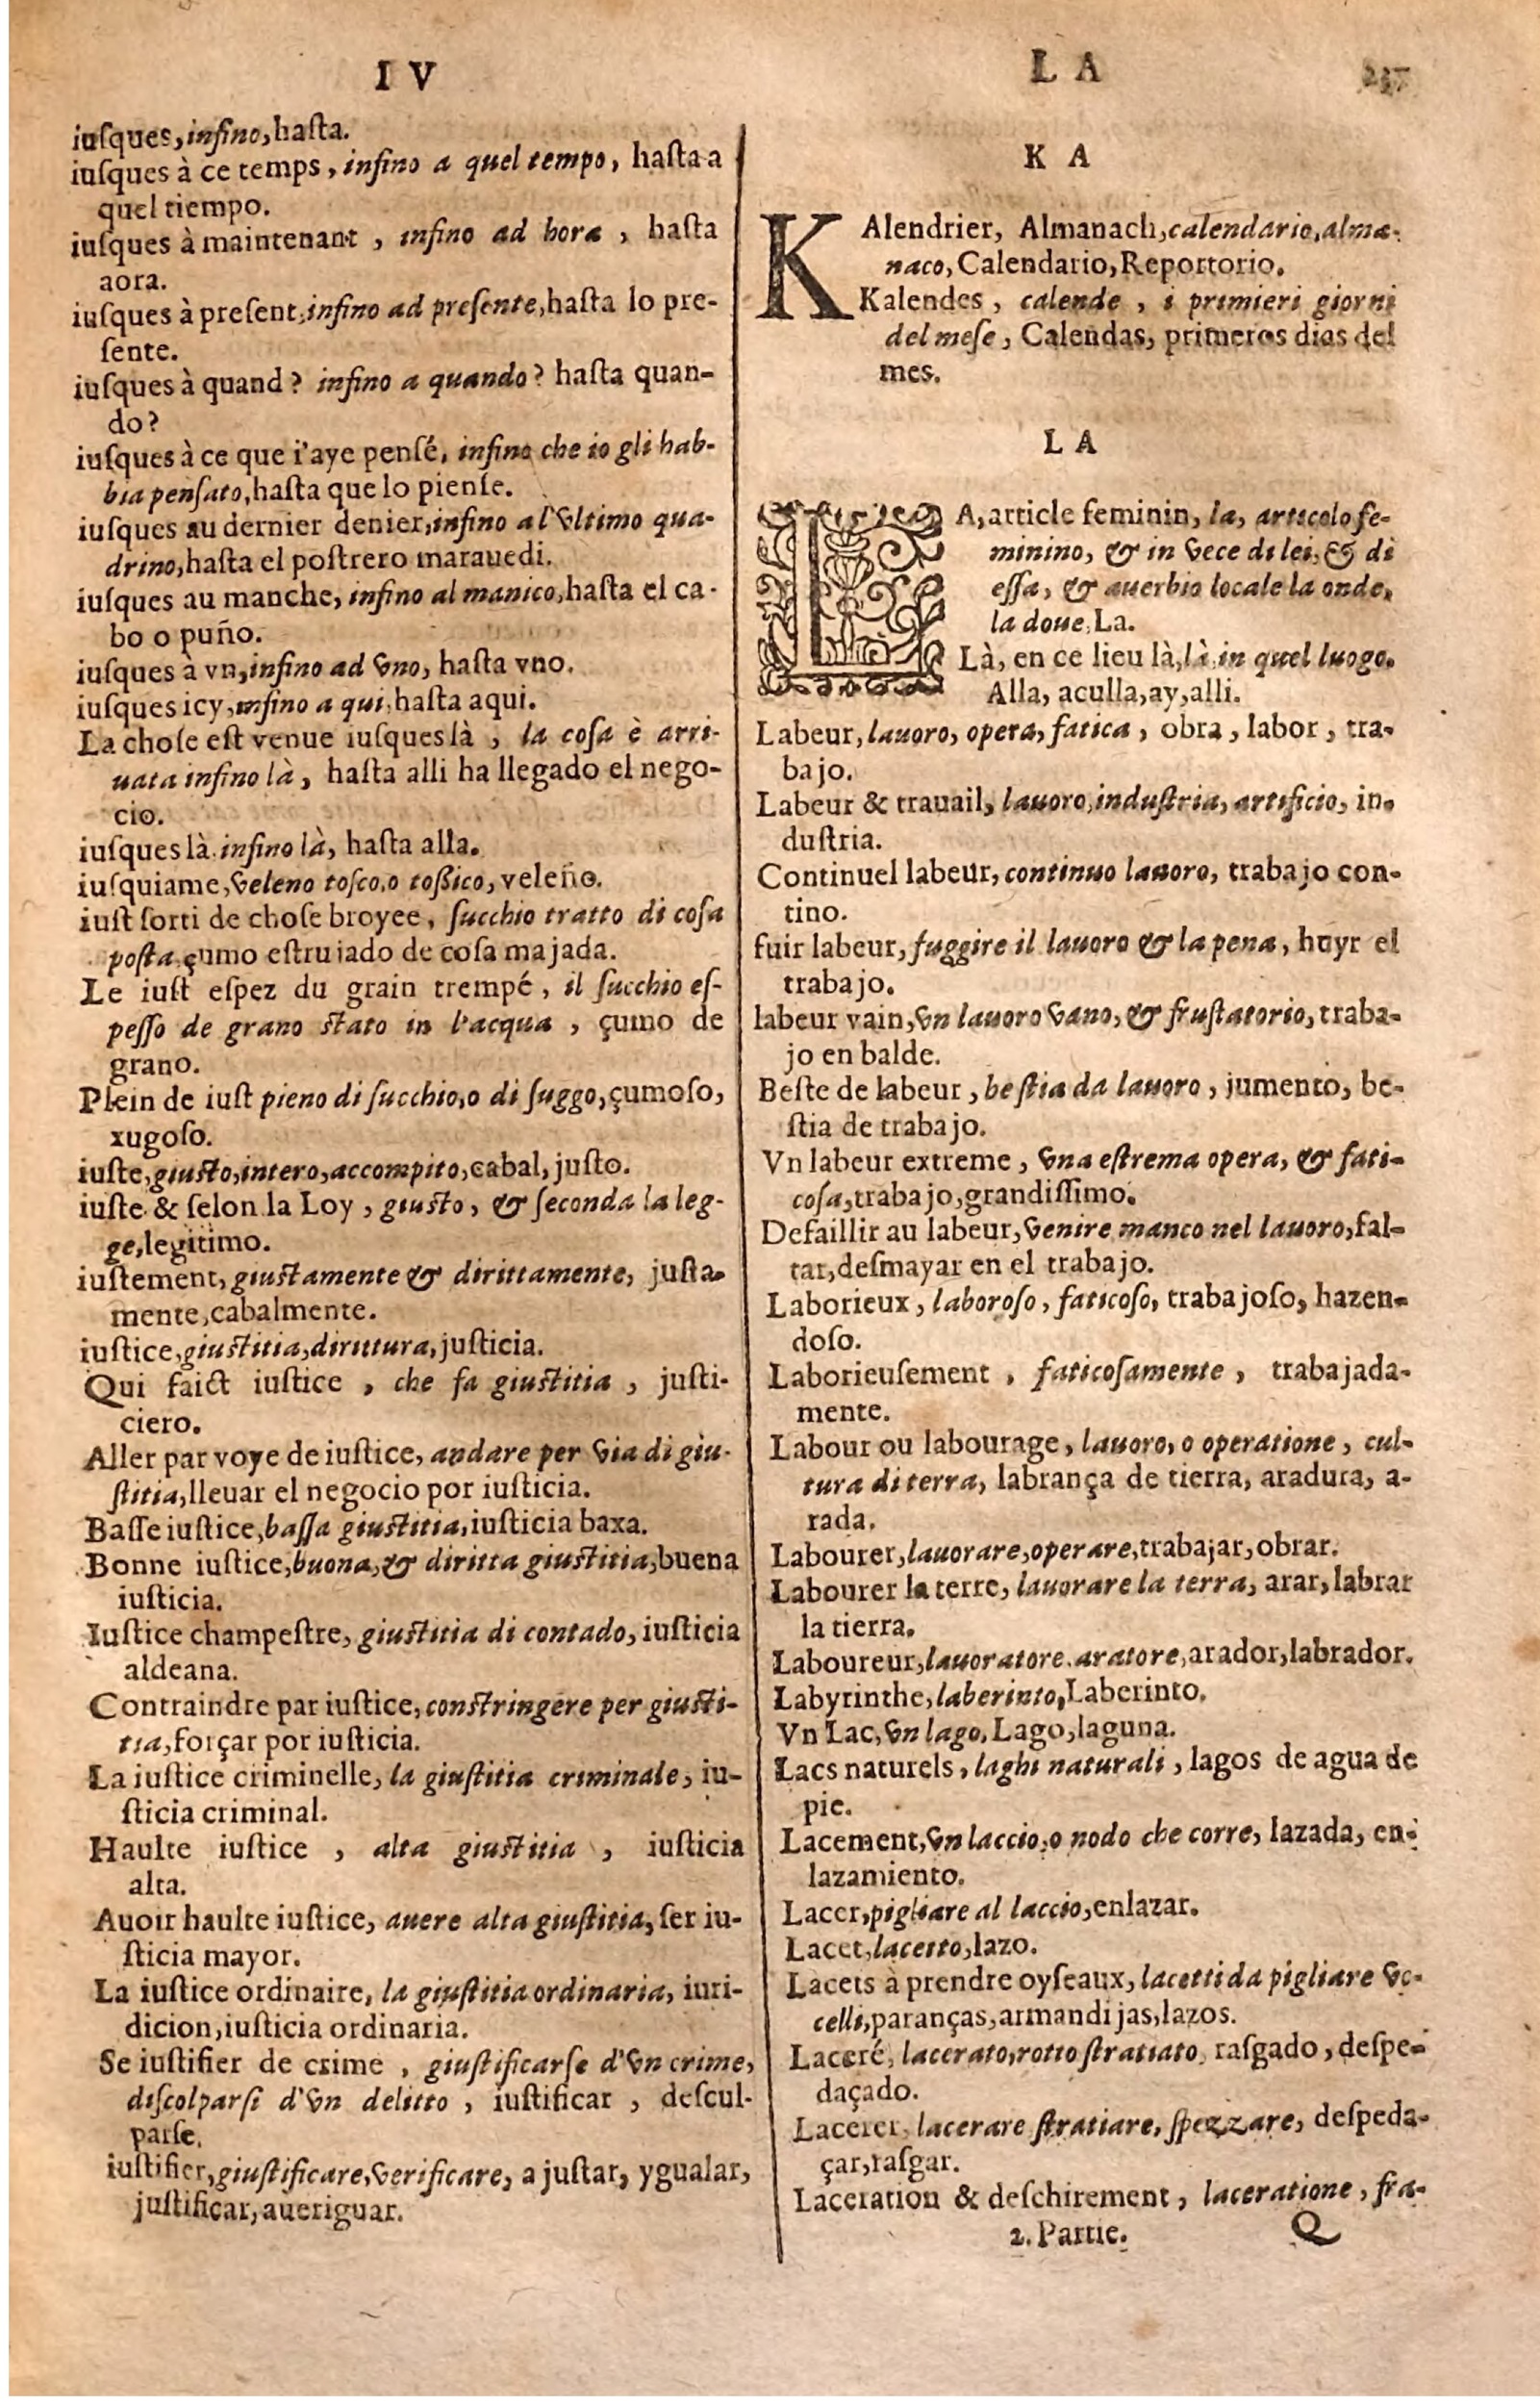 I V
iuſques, infino, haſta.
iuſques à ce temps, infino a quel tempo, haſta a
quel tiempo.
iuſques à maintenant, infino ad hora, haſta
aora.
iuſques à preſent, infino ad preſente, haſta lo pre-
ſente.
iuſques à quand? infino a quando? haſta quan-
do?
iuſques à ce que i'aye penſé, infino che io gli hab-
bia penſato, haſta que lo pienſe.
iuſques au dernier denier, infino al'vltimo qua-
drino, haſta el poſtrero marauedi.
iuſques au manche, infino al manico, haſta el ca-
bo o puño.
iuſques à vn, infino ad vno, haſta vno.
iuſques icy, infino a qui, haſta aqui.
La choſe eſt venue iuſques là, la coſa è arri-
uata infino là, haſta alli ha llegado el nego-
cio.
iuſques là, infino là, haſta alla.
iuſquiame, veleno toſco, o toßico, veleño.
iuſt ſorti de choſe broyee, ſucchio tratto di coſa
poſta, çumo eſtruiado de coſa majada.
Le iuſt eſpez du grain trempé, il ſucchio eſ-
peſſo de grano ſtato in l'acqua, çumo de
grano.
Plein de iuſt pieno di ſucchio, o di ſuggo, çumoſo,
xugoſo.
iuſte, giuſto, intero, accompito, cabal, juſto.
iuſte & ſelon la Loy, giuſto, & ſeconda la leg-
ge, legitimo.
iuſtement, giuſtamente & dirittamente, juſta-
mente, cabalmente.
iuſtice, giuſtitia, dirittura, juſticia.
Qui faict iuſtice, che fa giuſtitia, juſti-
ciero.
Aller par voye de iuſtice, andare per via di giu-
ſtitia, lleuar el negocio por iuſticia.
Baſſe iuſtice, baſſa giuſtitia, iuſticia baxa.
Bonne iuſtice, buona, & diritta giuſtitia, buena
iuſticia.
Iuſtice champeſtre, giuſtitia di contado, iuſticia
aldeana.
Contraindre par iuſtice, conſtringere per giuſti-
tia, forçar por iuſticia.
La iuſtice criminelle, la giuſtitia criminale, iu-
ſticia criminal.
Haulte iuſtice, alta giuſtitia, iuſticia
alta.
Auoir haulte iuſtice, auere alta giuſtitia, ſer iu-
ſticia mayor.
La iuſtice ordinaire, la giuſtitia ordinaria, iuri-
dicion, iuſticia ordinaria.
Se iuſtifier de crime, giuſtificarſe d'vn crime,
diſcolparſi d'vn delitto, iuſtificar, deſcul-
parſe.
iuſtifier, giuſtificare, verificare, a juſtar, ygualar,
juſtificar, aueriguar.
L A
K A
KAlendrier, Almanach, calendario, alma-
naco, Calendario, Reportorio.
Kalendes, calende, i primieri giorni
del meſe, Calendas, primeros dias del
mes.
L A
LA, article feminin, la, articolo fe-
minino, & in vece di lei, & di
eſſa, & auerbio locale la onde,
la doue, La.
Là, en ce lieu là, là, in quel luogo.
Alla, aculla, ay, alli.
Labeur, lauoro, opera, fatica, obra, labor, tra-
bajo.
Labeur & trauail, lauoro, induſtria, artificio, in-
duſtria.
Continuel labeur, continuo lauoro, trabajo con-
tino.
fuir labeur, fuggire il lauoro & la pena, huyr el
trabajo.
labeur vain, vn lauoro vano, & fruſtatorio, traba-
jo en balde.
Beſte de labeur, beſtia da lauoro, jumento, be-
ſtia de trabajo.
Vn labeur extreme, vna eſtrema opera, & fati-
coſa, trabajo, grandiſſimo.
Defaillir au labeur, venire manco nel lauoro, fal-
tar, deſmayar en el trabajo.
Laborieux, laboroſo, faticoſo, trabajoſo, hazen-
doſo.
Laborieuſement, faticoſamente, trabajada-
mente.
Labour ou labourage, lauoro, o operatione, cul-
tura di terra, labrança de tierra, aradura, a-
rada.
Labourer, lauorare, operare, trabajar, obrar.
Labourer la terre, lauorare la terra, arar, labrar
la tierra.
Laboureur, lauoratore, aratore, arador, labrador.
Labyrinthe, laberinto, Laberinto.
Vn Lac, vn lago, Lago, laguna.
Lacs naturels, laghi naturali, lagos de agua de
pie.
Lacement, vn laccio, o nodo che corre, lazada, en-
lazamiento.
Lacer, pigliare al laccio, enlazar.
Lacet, lacetto, lazo.
Lacets à prendre oyſeaux, lacetti da pigliare vc-
celli, paranças, armandijas, lazos.
Laceré, lacerato, rotto ſtratiato, raſgado, deſpe-
daçado.
Lacerer, lacerare ſtratiare, ſpezzare, deſpeda-
çar, raſgar.
Laceration & deſchirement, laceratione, fra-
2. Partie. Q